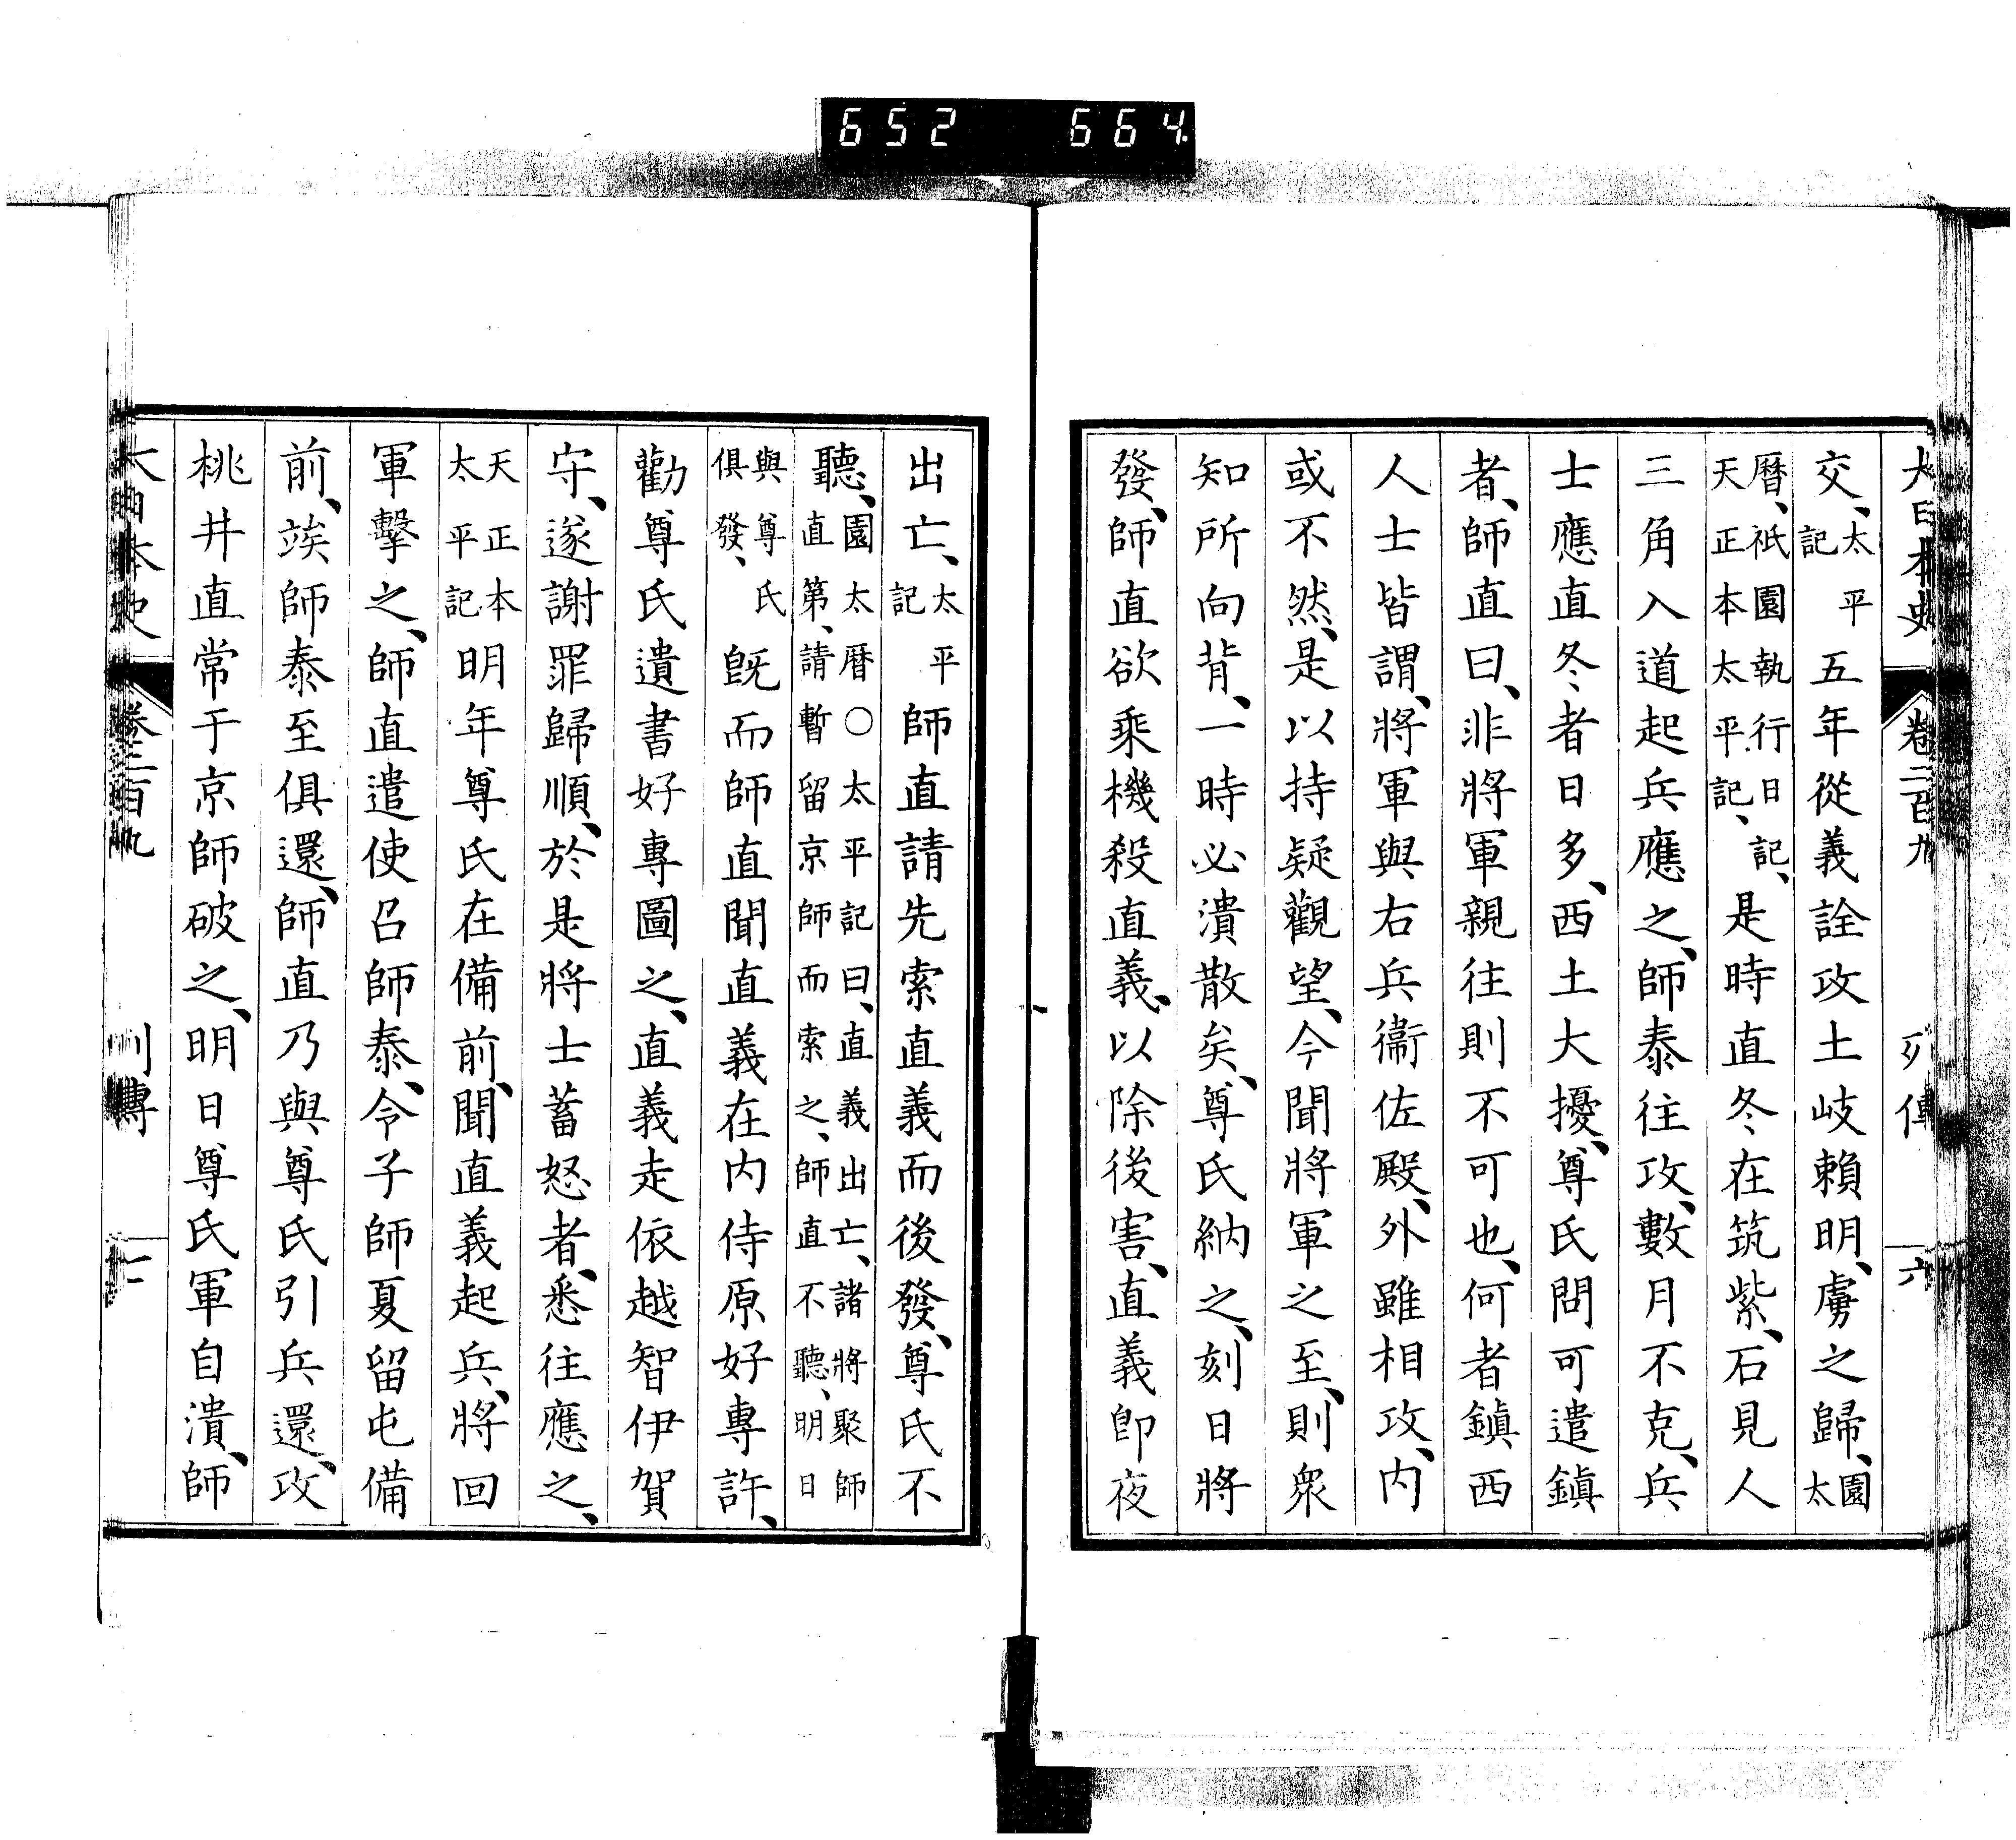 652 664
大日本史 卷二百九 列傳 六
交、太平記五年從義詮攻土岐賴明、虜之歸、園太
曆、祇園執行日記、天正本太平記、是時直冬在筑紫、石見人
三角入道起兵應之、師泰往攻、數月不克、兵
士應直冬者日多、西土大擾、尊氏問可遣鎭
者、師直曰、非將軍親往則不可也、何者鎭西
人士皆謂、將軍與右兵衞佐殿、外雖相攻、内
或不然、是以持疑觀望、今聞將軍之至、則衆
知所向背、一時必潰散矣、尊氏納之、刻日將
發、師直欲乘機殺直義、以除後害、直義卽夜
出亡、太平記師直請先索直義而後發、尊氏不
聽、園太曆○太平記曰、直義出亡、諸將聚師直第、請暫留京師而索之、師直不聽、明日
與尊氏俱發、旣而師直聞直義在内侍原好專許、
勸尊氏遺書好專圖之、直義走依越智伊賀
守、遂謝罪歸順、於是將士蓄怒者、悉往應之、
天正本太平記明年尊氏在備前、聞直義起兵、將回
軍擊之、師直遣使召師泰、令子師夏留屯備
前、竢師泰至俱還、師直乃與尊氏引兵還、攻
桃井直常于京師破之、明日尊氏軍自潰、師
大日本史 卷二百九 列傳 七